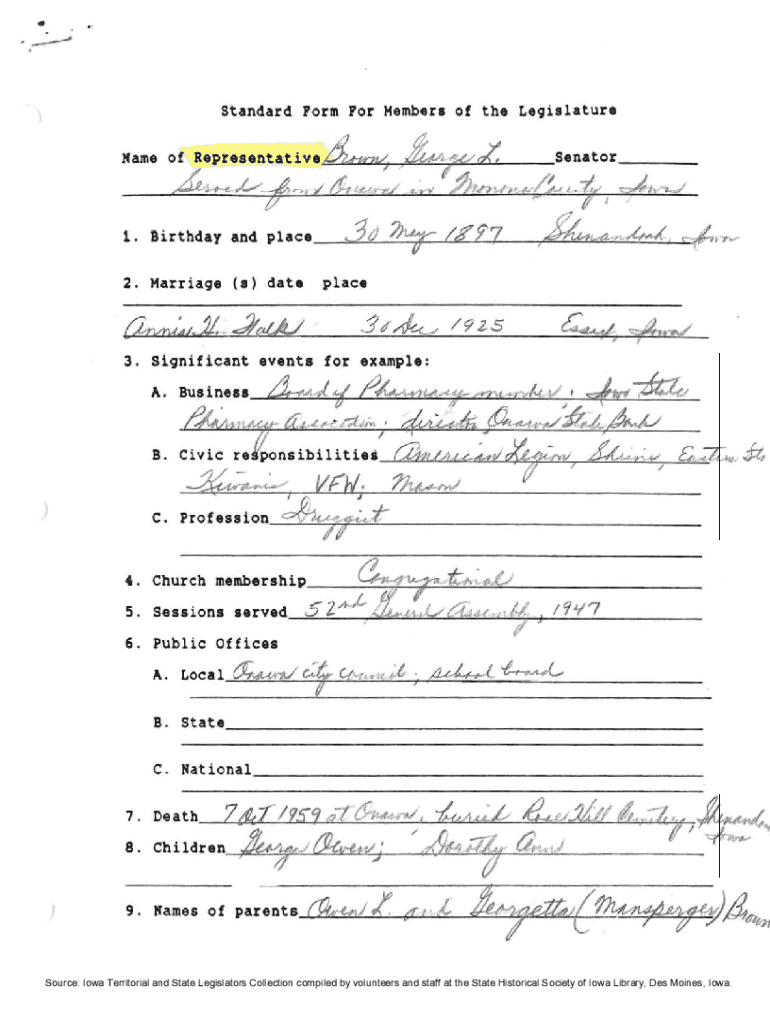 Standard Form For Members of the Legislature
Name of Representative Brown, George L. Senator
Served from Onawa in Monona County, Iowa
1. Birthday and place 30 May 1897 Shenandoah, Iowa
2. Marriage (s) date place
Annise H. 30 Dec 1925 Essex, Iowa
3. Significant events for example:
A. Business Board of Pharmacy member; Iowa State
Pharmacy Association; director, Onawa State Bank
B. Civic responsibilities American Legion, Shrine, Eastern
Kiwanis, VFW, Mason
C. Profession Druggist
4. Church membership Congregational
5. Sessions served 52nd General Assembly, 1947
6. Public Offices
A. Local Onawa city council; school board
B. State
C. National
7. Death 7 Oct 1959 at Onawa, buried Rose Hill Cemetery,
Iowa
8. Children George Owen; Dorothy Ann
9. Names of parents Owen L. and Georgetta (Mansperger) Brown
Source: Iowa Territorial and State Legislators Collection compiled by volunteers and staff at the State Historical Society of Iowa Library, Des Moines, Iowa.